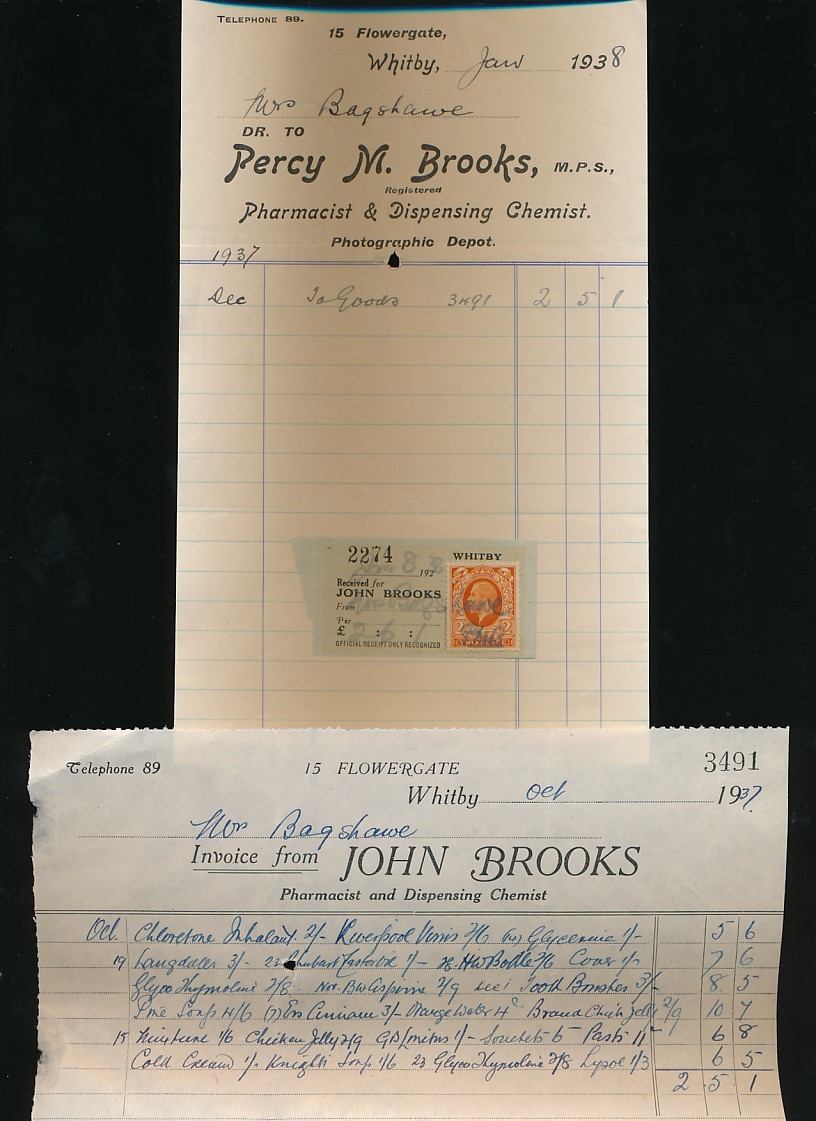 TELEPHONE 89.
15 Flowergate,
Whitby, Jan 1938
Mrs Bagshawe
DR. TO
Percy M. Brooks, M.P.S.,
Registered
Pharmacist & Dispensing Chemist.
Photographic Depot.
1937
Dec To Goods 3491 2 5 1
2274 WHITBY
192
Received for
JOHN BROOKS
From Mrs Bagshawe
Per
£ : :
OFFICIAL RECEIPT ONLY RECOGNIZED
Telephone 89 15 FLOWERGATE 3491
Whitby Oct 1937
Mrs Bagshawe
Invoice from JOHN BROOKS
Pharmacist and Dispensing Chemist
Oct. Chloretone Inhalant 2/- Glycerine 1/- 5 6
19 3/- 23 1/- HW Bottle 2/6 Cover 1/- 7 6
Glyco Thymoline 2/8 Nov. 2/9 Dec 1 Tooth Brushes 3/- 8 5
Soap 4/6 (7) Ess Cinnam 3/- Orange Water 4d Brand Chick Jelly 2/9 10 7
15 Chicken Jelly 2/9 1/- 6 8
Cold Cream 1/- Knights Soap 1/6 23 Glyco Thymoline 2/8 Lysol 1/3 6 5
2 5 1